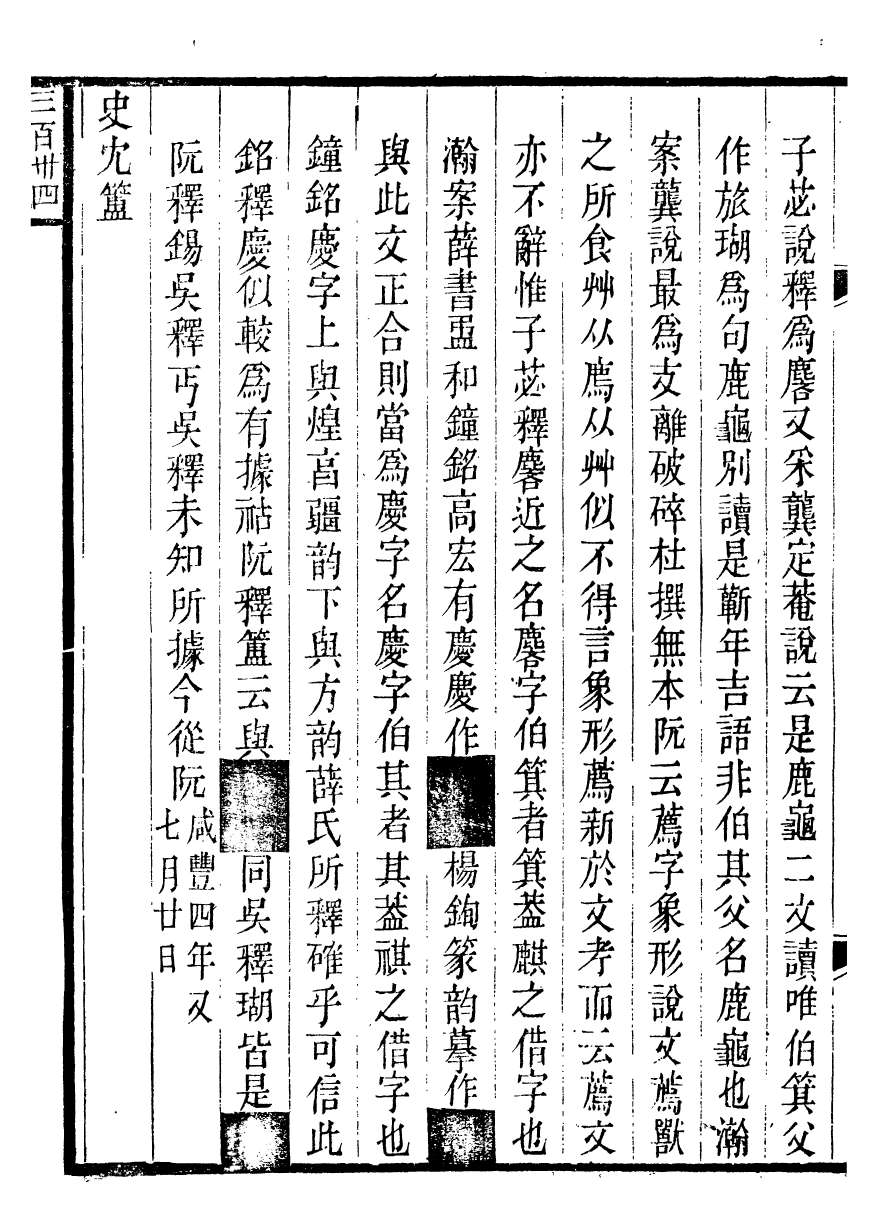 子苾說釋爲麐又采龔定菴說云是鹿龜二文讀唯伯箕父
作旅瑚爲句鹿龜別讀是蘄年吉語非伯其父名鹿龜也瀚
案龔說最爲支離破碎杜撰無本阮云薦字象形說文薦獸
之所食艸从廌从艸似不得言象形薦新於文考而云薦文
亦不辭惟子苾釋麐近之名麐字伯箕者箕葢麒之借字也
瀚案薛書盄和鐘銘高宏有慶慶作
楊鉤篆韵摹作
與此文正合則當爲慶字名慶字伯其者其葢祺之借字也
鐘銘慶字上與煌亯疆韵下與方韵薛氏所釋確乎可信此
銘釋慶似較爲有據祜阮釋簠云與
同吳釋瑚皆是
阮釋錫吳釋丏吳釋未知所據今從阮
咸豐四年又
七月廿日
史冘簠
三百卅四